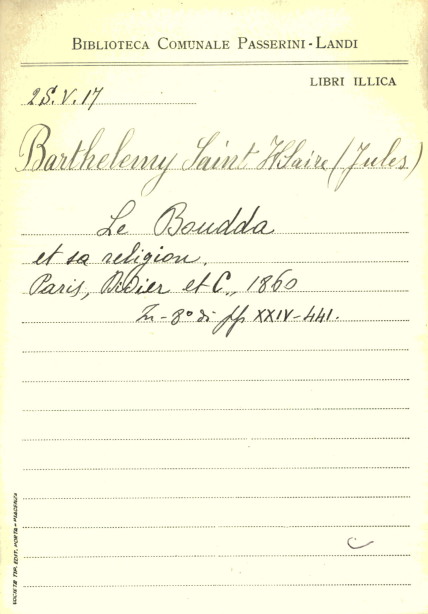 BIBLIOTECA COMUNALE PASSERINI-LANDI
LIBRI ILLICA
25.V.17
Barthelemy Saint Hilaire (Jules)
Le Boudda
et sa religion.
Paris, Didier et C., 1860
In-8° di pp XXIV-441.
SOCIETÀ TIP. EDIT. PORTA - PIACENZA